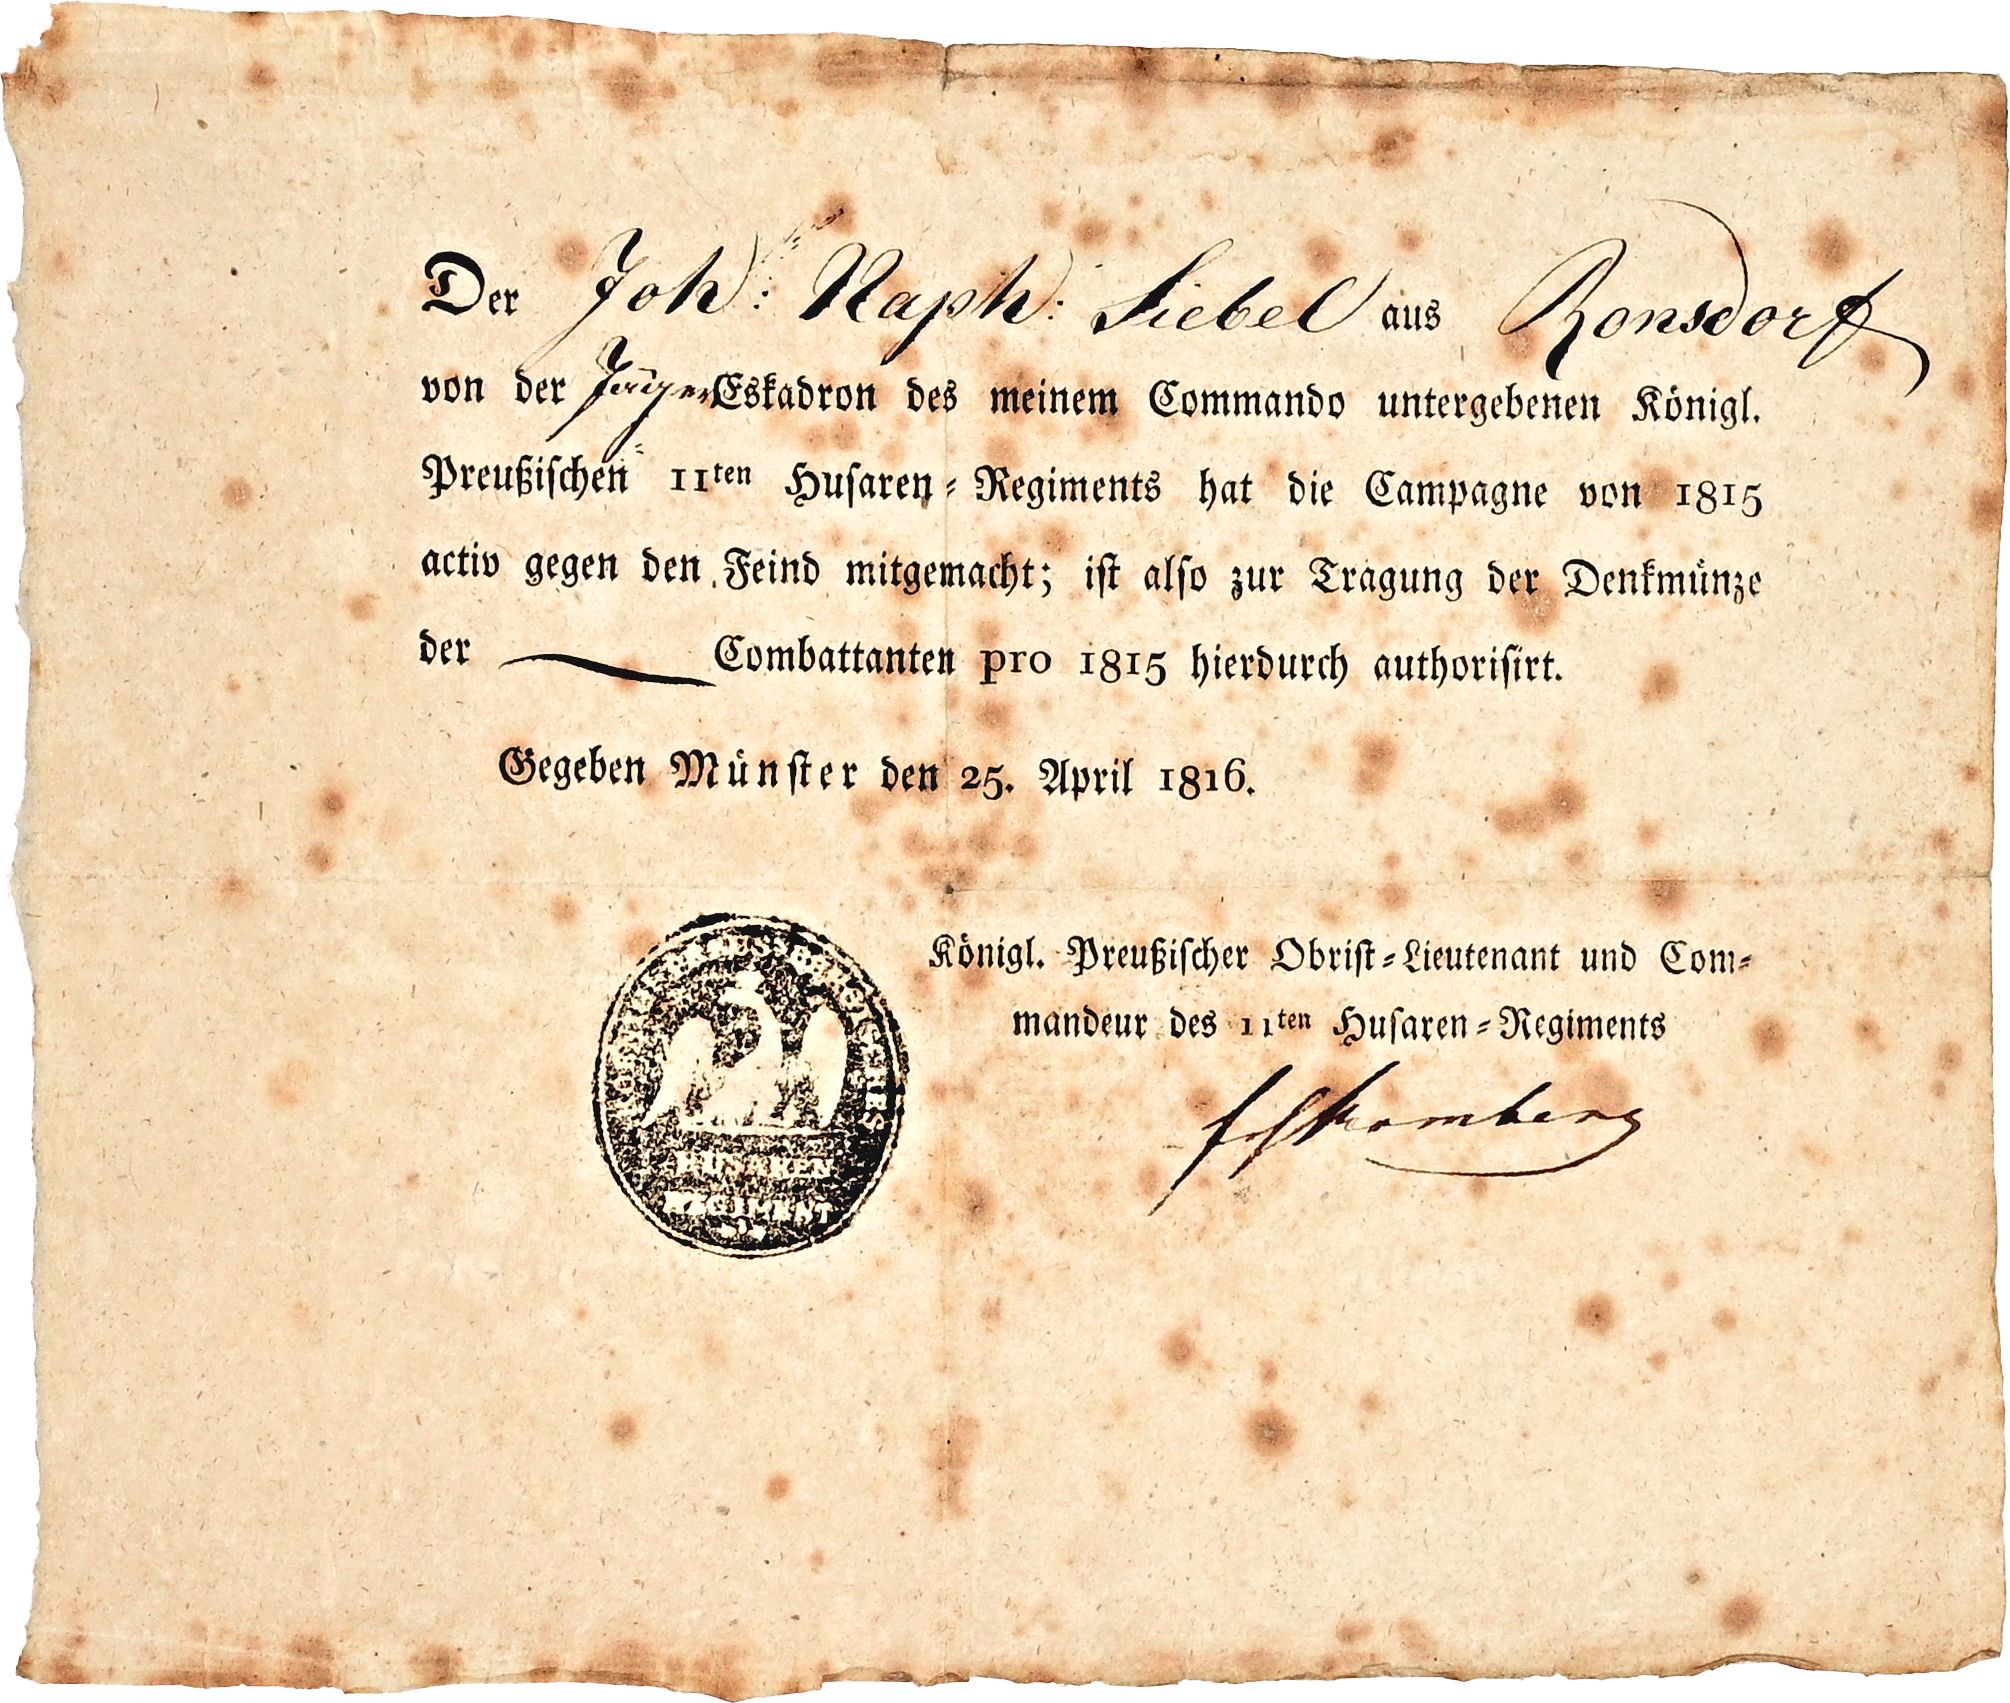 Der Joh: Raph: Siebel aus Ronsdorf
von der Jäger Eskadron des meinem Commando untergebenen Königl.
Preußischen 11ten Husaren-Regiments hat die Campagne von 1815
activ gegen den Feind mitgemacht; ist also zur Tragung der Denkmünze
der Combattanten pro 1815 hierdurch authorisirt.
Gegeben Münster den 25. April 1816.
Königl. Preußischer Obrist-Lieutenant und Com-
mandeur des 11ten Husaren-Regiments
HUSAREN
REGIMENT